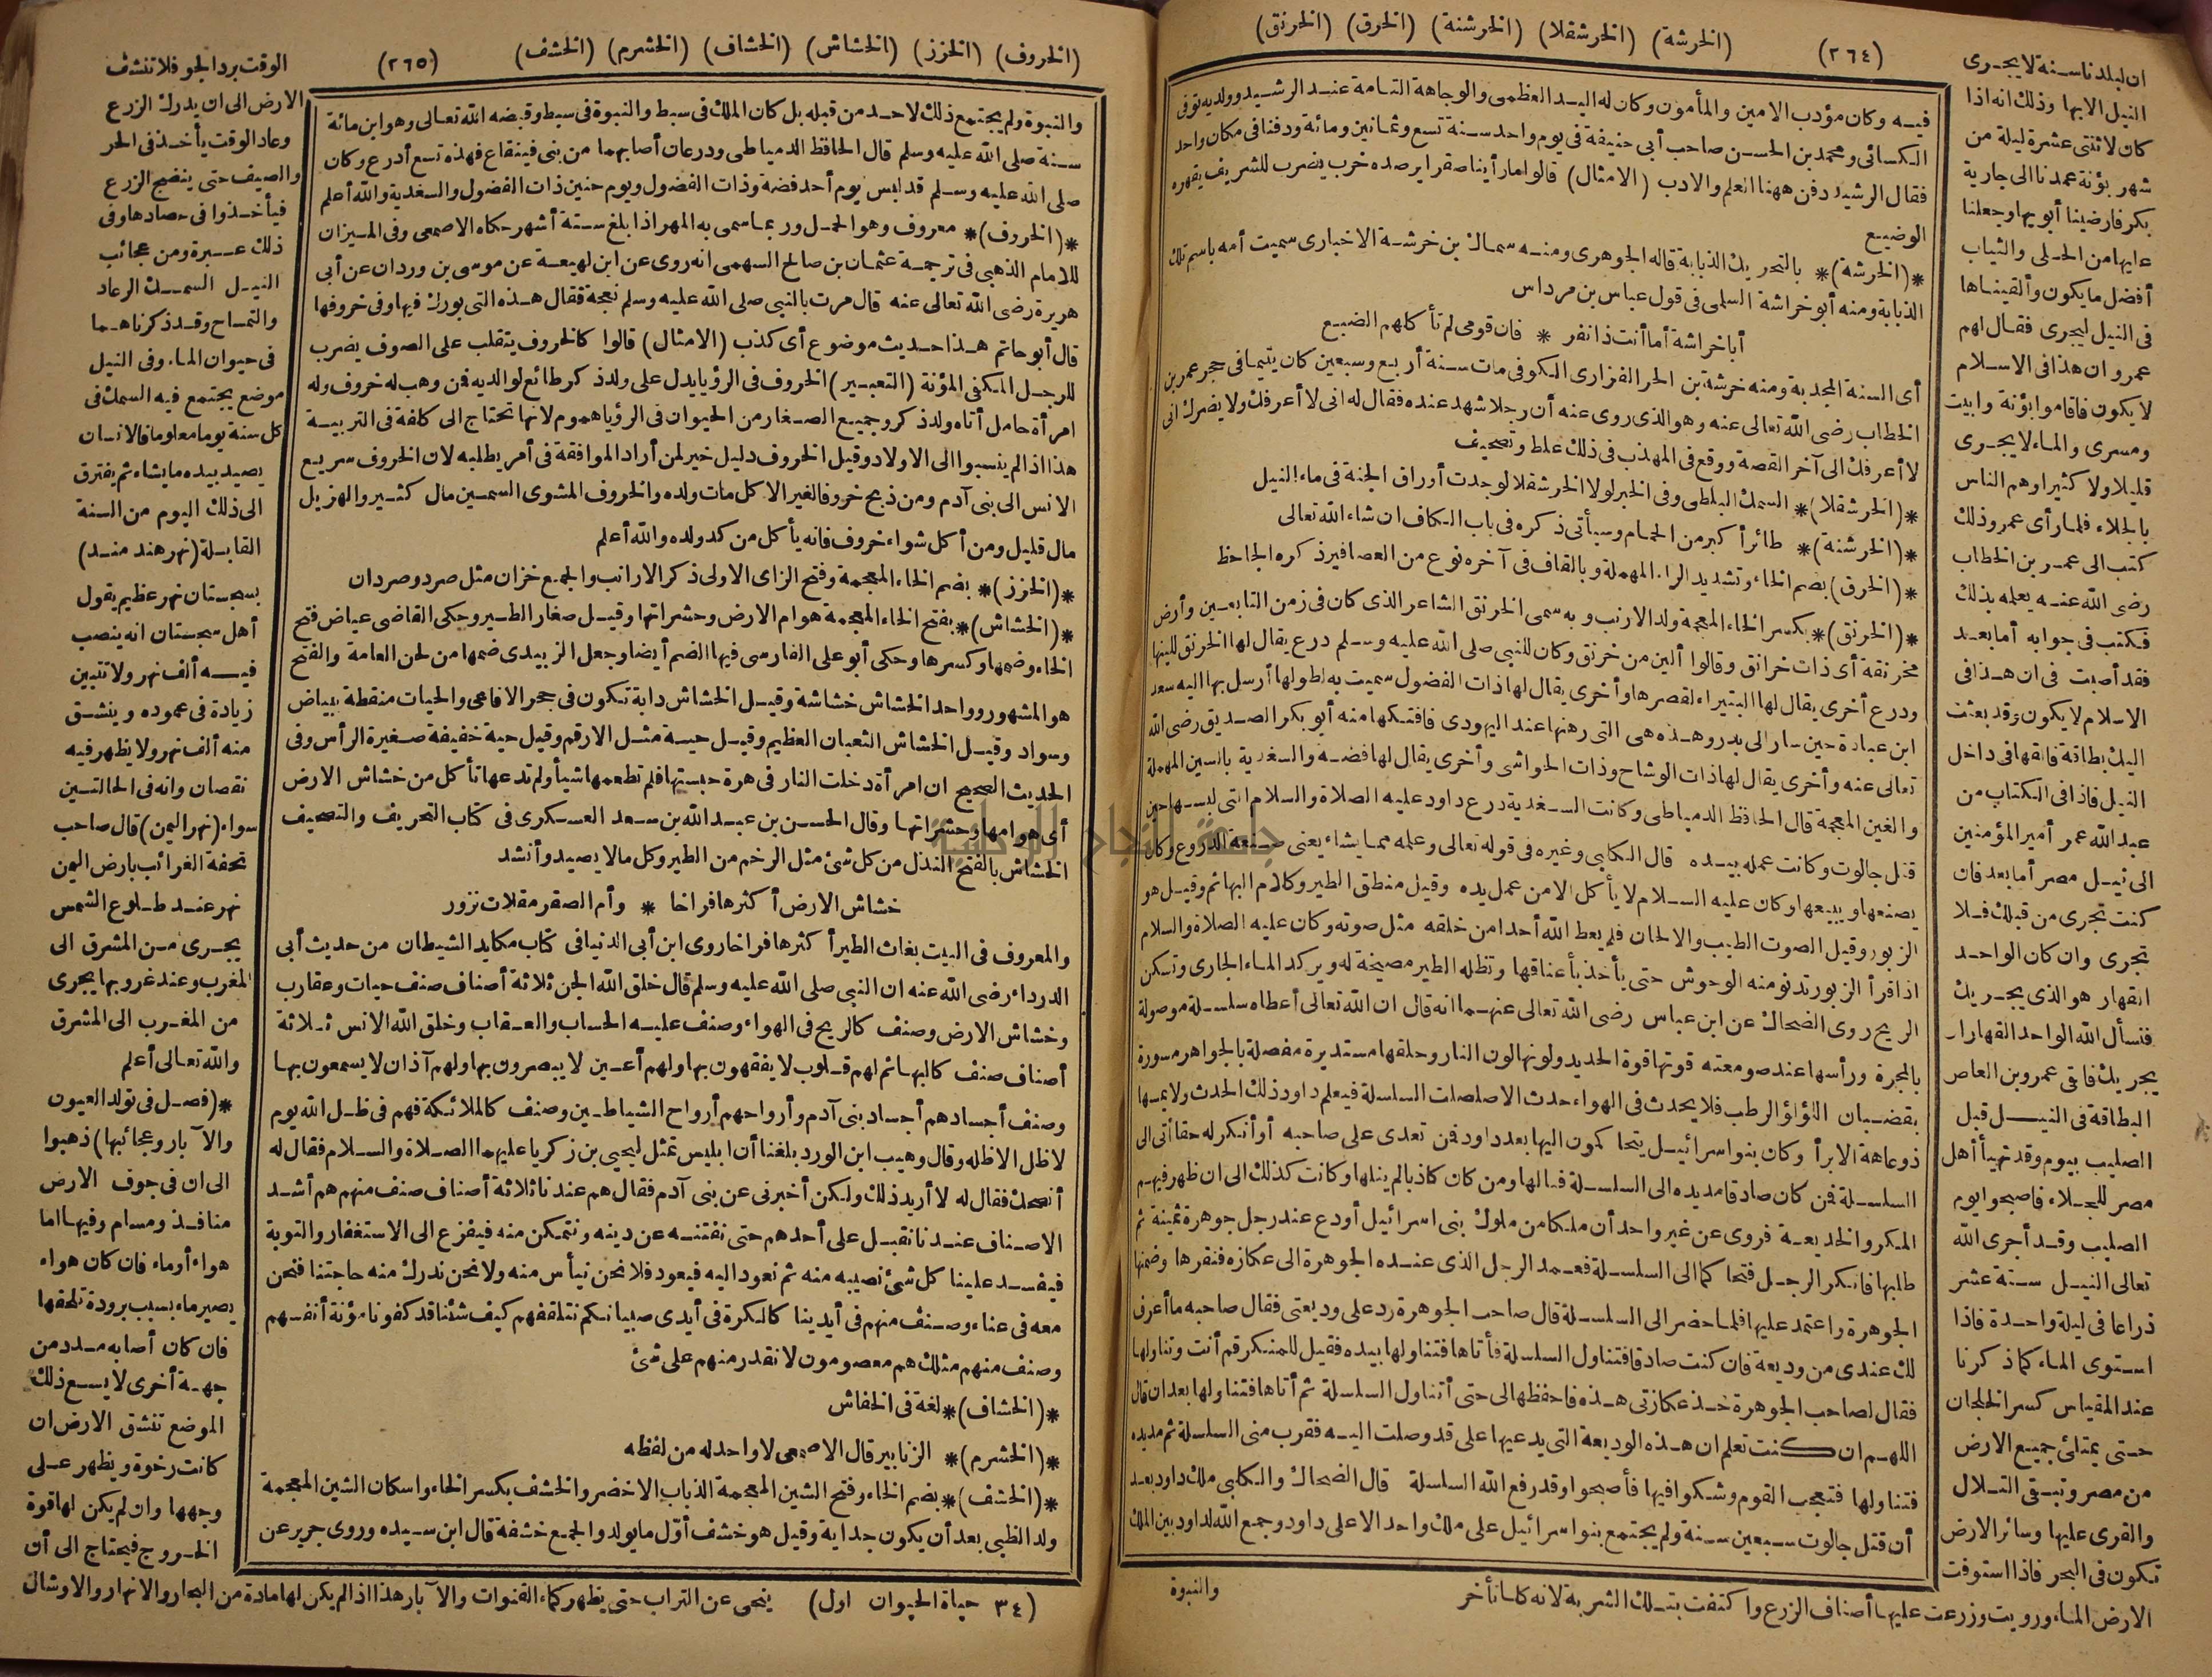 (الخرشة) (الخرشقلا) (الخرشنة) (الخرق) (الخرنق)
(٢٦٤)
فيه وكان مؤدب الامين والمأمون وكان له اليد العظمى والوجاهة التامة عند الرشيد وولديه توفى
الكسائى ومحمد بن الحسن صاحب أبى حنيفة فى يوم واحد سنة تسع وثمانين ومائة ودفنا فى مكان واحد
فقال الرشيد دفن ههنا العلم والادب (الامثال) قالوا ما رأينا صقرا يرصده خرب يضرب للشريف يقهره
الوضيع
*(الخرشة)* بالتحريك الذبابة قاله الجوهرى ومنه سماك بن خرشة الاخبارى سميت أمه باسم تلك
الذبابة ومنه أبو خراشة السلمى فى قول عباس بن مرداس
أبا خراشة أما أنت ذا نفر * فان قومى لم تأكلهم الضبع
أى السنة المجدبة ومنه خرشة بن الحر الفزارى الكوفى مات سنة أربع وسبعين كان يتيما فى حجر عمر بن
الخطاب رضى الله تعالى عنه وهو الذى روى عنه أن رجلا شهد عنده فقال له انى لا أعرفك ولا يضرك انى
لا أعرفك الى آخر القصة ووقع فى المهذب فى ذلك غلط وتصحيف
*(الخرشقلا)* السمك البلطى وفى الخبر لولا الخرشقلا لوجدت أوراق الجنة فى ماء النيل
*(الخرشنة)* طائر أكبر من الحمام وسيأتى ذكره فى باب الكاف ان شاء الله تعالى
*(الخرق) بضم الخاء وتشديد الراء المهملة وبالقاف فى آخره نوع من العصافير ذكره الجاحظ
*(الخرنق)* بكسر الخاء المعجمة ولد الارنب وبه سمى الخرنق الشاعر الذى كان فى زمن التابعين وأرض
مخرنقة أى ذات خرانق وقالوا ألين من خرنق وكان للنبى صلى الله عليه وسلم درع يقال لها الخرنق للينها
ودرع أخرى يقال لها البتيراء لقصرها وأخرى يقال لها ذات الفضول سميت به لطولها أرسل بها اليه سعد
ابن عبادة حين سار الى بدر وهذه هى التى رهنها عند اليهودى فافتكها منه أبو بكر الصديق رضى الله
تعالى عنه وأخرى يقال لها ذات الوشاح وذات الحواشى وأخرى يقال لها فضة والسغدية بالسين المهملة
والغين المعجمة قال الحافظ الدمياطى وكانت السغدية درع داود عليه الصلاة والسلام التى لبسها حين
قتل جالوت وكانت عمله بيده قال الكلبى وغيره فى قوله تعالى وعلمه مما يشاء يعنى صنعة الدروع وكان
يصنعها ويبيعها وكان عليه السلام لا يأكل الا من عمل يده وقيل منطق الطير وكلام البهائم وقيل هو
الزبور وقيل الصوت الطيب والالحان فلم يعط الله أحدا من خلقه مثل صوته وكان عليه الصلاة والسلام
اذا قرأ الزبور تدنو منه الوحوش حتى يأخذ بأعناقها وتظله الطير مصيخة له ويركد الماء الجارى وتسكن
الريح روى الضحاك عن ابن عباس رضى الله تعالى عنهما انه قال ان الله تعالى أعطاه سلسلة موصولة
بالمجرة ورأسها عند صومعته قوتها قوة الحديد ولونها لون النار وحلقها مستديرة مفصلة بالجواهر مسورة
بقضبان اللؤلؤ الرطب فلا يحدث فى الهواء حدث الا صلصلت السلسلة فيعلم داود ذلك الحدث ولا يمسها
ذو عاهة الا برأ وكان بنو اسرائيل يتحاكمون اليها بعد داود فمن تعدى على صاحبه أو أنكر له حقا أتى الى
السلسلة فمن كان صادقا مد يده الى السلسلة فنالها ومن كان كاذبا لم ينلها وكانت كذلك الى ان ظهر فيهم
المكر والخديعة فروى عن غير واحد أن ملكا من ملوك بنى اسرائيل أودع عند رجل جوهرة ثمينة ثم
طلبها فانكر الرجل فتحاكما الى السلسلة فعمد الرجل الذى عنده الجوهرة الى عكازه فنقرها وضمنها
الجوهرة واعتمد عليها فلما حضر الى السلسلة قال صاحب الجوهرة رد على وديعتى فقال صاحبه ما أعرف
لك عندى من وديعة فان كنت صادقا فتناول السلسلة فأتاها فتناولها بيده فقيل للمنكر قم أنت وتناولها
فقال لصاحب الجوهرة خذ عكازتى هذه فاحفظها لى حتى أتناول السلسلة ثم أتاها فتناولها بعد ان قال
اللهم ان كنت تعلم ان هذه الوديعة التى يدعيها على قد وصلت اليه فقرب منى السلسلة ثم مد يده
فتناولها فتعجب القوم وشكوا فيها فأصبحوا وقد رفع الله السلسلة قال الضحاك والكلبى ملك داود بعد
أن قتل جالوت سبعين سنة ولم يجتمع بنو اسرائيل على ملك واحد الا على داود وجمع الله لداود بين الملك
والنبوة
ان لبلدنا سنة لا يجرى
النيل الا بها وذلك انه اذا
كان لاثنتى عشرة ليلة من
شهر بؤنة عمدنا الى جارية
بكر فارضينا أبويها وجعلنا
عليها من الحلى والثياب
أفضل ما يكون وألقيناها
فى النيل ليجرى فقال لهم
عمرو ان هذا فى الاسلام
لا يكون فاقاموا بؤنة وابيب
ومسرى والماء لا يجرى
قليلا ولا كثيرا وهم الناس
بالجلاء فلما رأى عمرو ذلك
كتب الى عمر بن الخطاب
رضى الله عنه يعلمه بذلك
فكتب فى جوابه أما بعد
فقد أصبت فى ان هذا فى
الاسلام لا يكون وقد بعثت
اليك بطاقة فالقها فى داخل
النيل فاذا فى الكتاب من
عبد الله عمر أمير المؤمنين
الى نيل مصر أما بعد فان
كنت تجرى من قبلك فلا
تجرى وان كان الواحد
القهار هو الذى يجريك
فنسأل الله الواحد القهار ان
يجريك فالقى عمرو بن العاص
البطاقة فى النيل قبل
الصليب بيوم وقد تهيأ أهل
مصر للجلاء فاصبحوا يوم
الصليب وقد أجرى الله
تعالى النيل ستة عشر
ذراعا فى ليلة واحدة فاذا
استوى الماء كما ذكرنا
عند المقياس كسر الخلجان
حتى يمتلئ جميع الارض
من مصر وتبقى التلال
والقرى عليها وسائر الارض
تكون فى البحر فاذا استوفت
الارض الماء ورويت وزرعت عليها أصناف الزرع واكتفت بتلك الشربة لانه كلما تأخر
(الخروف) (الخزز) (الخشاش) (الخشاف) (الخشرم) (الخشف)
(٢٦٥)
والنبوة ولم يجتمع ذلك لاحد من قبله بل كان الملك فى سبط والنبوة فى سبط وقبضه الله تعالى وهو ابن مائة
سنة صلى الله عليه وسلم قال الحافظ الدمياطى ودرعان أصابهما من بنى قينقاع فهذه تسع أدرع وكان
صلى الله عليه وسلم قد لبس يوم أحد فضة وذات الفضول ويوم حنين ذات الفضول والسغدية والله أعلم
*(الخروف)* معروف وهو الحمل وربما سمى به المهر اذا بلغ ستة أشهر حكاه الاصمعى وفى الميزان
للامام الذهبى فى ترجمة عثمان بن صالح السهمى انه روى عن ابن لهيعة عن موسى بن وردان عن أبى
هريرة رضى الله تعالى عنه قال مرت بالنبى صلى الله عليه وسلم نعجة فقال هذه التى بورك فيها وفى خروفها
قال أبو حاتم هذا حديث موضوع أى كذب (الامثال) قالوا كالخروف يتقلب على الصوف يضرب
للرجل المكفى المؤنة (التعبير) الخروف فى الرؤيا يدل على ولد ذكر طائع لوالديه فمن وهب له خروف وله
امرأة حامل أتاه ولد ذكر وجميع الصغار من الحيوان فى الرؤيا هموم لانها تحتاج الى كلفة فى التربية
هذا اذا لم ينسبوا الى الاولاد وقيل الخروف دليل خير لمن أراد الموافقة فى أمر يطلبه لان الخروف سريع
الانس الى بنى آدم ومن ذبح خروفا لغير الاكل مات ولده والخروف المشوى السمين مال كثير والهزيل
مال قليل ومن أكل شواء خروف فانه يأكل من كد ولده والله أعلم
*(الخزز)* بضم الخاء المعجمة وفتح الزاى الاولى ذكر الارانب والجمع خزان مثل صرد وصردان
*(الخشاش)* بفتح الخاء المعجمة هوام الارض وحشراتها وقيل صغار الطير وحكى القاضى عياض فتح
الخاء وضمها وكسرها وحكى أبو على الفارسى فيها الضم أيضا وجعل الزبيدى ضمها من لحن العامة والفتح
هو المشهور وواحد الخشاش خشاشة وقيل الخشاش دابة تكون فى جحر الافاعى والحيات منقطة ببياض
وسواد وقيل الخشاش الثعبان العظيم وقيل حية مثل الارقم وقيل حية خفيفة صغيرة الرأس وفى
الحديث الصحيح ان امرأة دخلت النار فى هرة حبستها فلم تطعمها شيأ ولم تدعها تأكل من خشاش الارض
أى هوامها وحشراتها وقال الحسن بن عبد الله بن سعد العسكرى فى كتاب التحريف والتصحيف
الخشاش بالفتح النذل من كل شئ مثل الرخم من الطير وكل مالا يصيد وأنشد
خشاش الارض أكثرها فراخا * وأم الصقر مقلات نزور
والمعروف فى البيت بغاث الطير أكثرها فراخا روى ابن أبى الدنيا فى كتاب مكايد الشيطان من حديث أبى
الدرداء رضى الله عنه ان النبى صلى الله عليه وسلم قال خلق الله الجن ثلاثة أصناف صنف حيات وعقارب
وخشاش الارض وصنف كالريح فى الهواء وصنف عليه الحساب والعقاب وخلق الله الانس ثلاثة
أصناف صنف كالبهائم لهم قلوب لا يفقهون بها ولهم أعين لا يبصرون بها ولهم آذان لا يسمعون بها
وصنف أجسادهم أجساد بنى آدم وأرواحهم أرواح الشياطين وصنف كالملائكة فهم فى ظل الله يوم
لا ظل الا ظله وقال وهيب ابن الورد بلغنا أن ابليس تمثل ليحيى بن زكريا عليهما الصلاة والسلام فقال له
أنصحك فقال له لا أريد ذلك ولكن أخبرنى عن بنى آدم فقال هم عندنا ثلاثة أصناف صنف منهم هم أشد
الاصناف عندنا نقبل على أحدهم حتى نفتنه عن دينه ونتمكن منه فيفزع الى الاستغفار والتوبة
فيفسد علينا كل شئ نصيبه منه ثم نعود اليه فيعود فلا نحن نيأس منه ولا نحن ندرك منه حاجتنا فنحن
معه فى عناء وصنف منهم فى أيدينا كالكرة فى أيدى صبيانكم نتلقفهم كيف شئنا قد كفونا مؤنة أنفسهم
وصنف منهم مثلك هم معصومون لا نقدر منهم على شئ
*(الخشاف)* لغة فى الخفاش
*(الخشرم)* الزنابير قال الاصمعى لا واحد له من لفظه
*(الخشف)* بضم الخاء وفتح الشين المعجمة الذباب الاخضر والخشف بكسر الخاء واسكان الشين المعجمة
ولد الظبى بعد أن يكون جداية وقيل هو خشف أول ما يولد والجمع خشفة قال ابن سيده وروى جرير عن
الوقت برد الجو فلا تنشف
الارض الى ان يدرك الزرع
وعاد الوقت يأخذ فى الحر
والصيف حتى ينضج الزرع
فيأخذوا فى حصادها وفى
ذلك عبرة ومن عجائب
النيل السمك الرعاد
والتمساح وقد ذكرناهما
فى حيوان الماء وفى النيل
موضع يجتمع فيه السمك فى
كل سنة يوما معلوما فالانسان
يصيد بيده ما يشاء ثم يفترق
الى ذلك اليوم من السنة
القابلة (نهر هند مند)
بسجستان نهر عظيم يقول
أهل سجستان انه ينصب
فيه ألف نهر ولا تتبين
زيادة فى عموده وينشق
منه ألف نهر ولا يظهر فيه
نقصان وانه فى الحالتين
سواء (نهر اليمن) قال صاحب
تحفة الغرائب بارض اليمن
نهر عند طلوع الشمس
يجرى من المشرق الى
المغرب وعند غروبها يجرى
من المغرب الى المشرق
والله تعالى أعلم
*(فصل فى تولد العيون
والآبار وعجائبها) ذهبوا
الى ان فى جوف الارض
منافذ ومسام وفيها اما
هواء أو ماء فان كان هواء
يصير ماء بسبب برودة تلحقها
فان كان أصابه مدد من
جهة أخرى لا يسع ذلك
الموضع تنشق الارض ان
كانت رخوة ويظهر على
وجهها وان لم يكن لها قوة
الخروج فيحتاج الى أن
ينحى عن التراب حتى يظهر كماء القنوات والآبار هذا اذا لم يكن لها مادة من البحار والانهار والاوشال
(٣٤ حياة الحيوان اول)
جامعة النجاح الوطنية